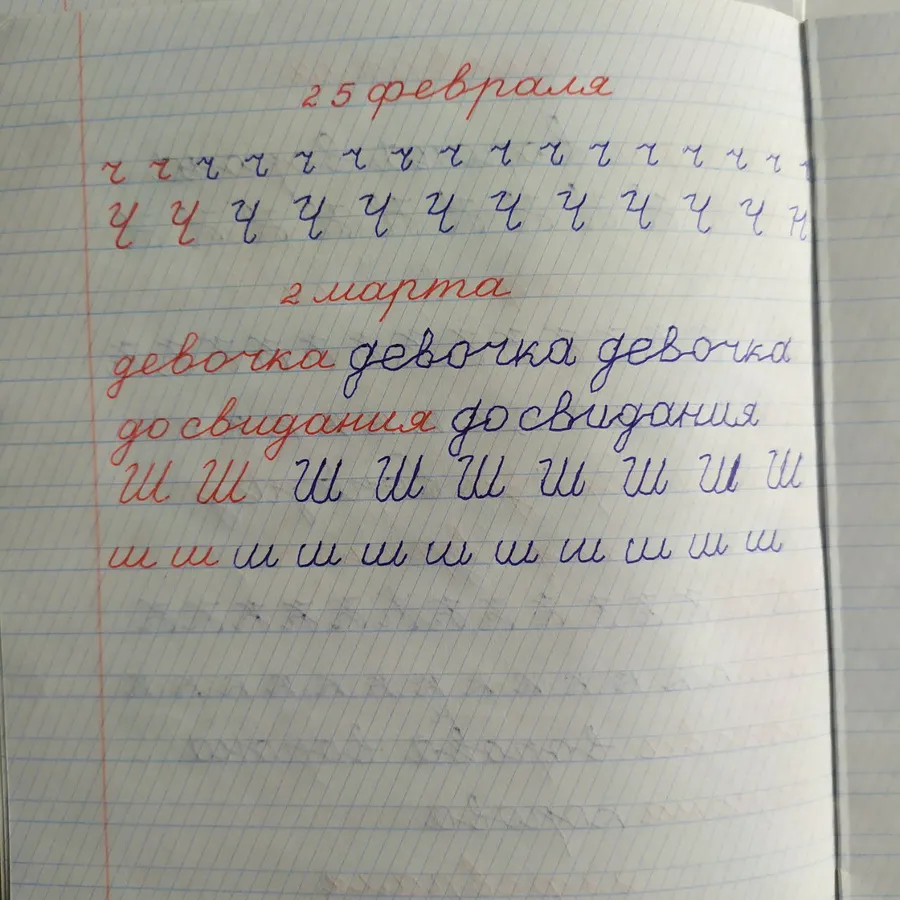 25 февраля
ч ч ч ч ч ч ч ч ч ч ч ч ч ч ч
Ч Ч Ч Ч Ч Ч Ч Ч Ч Ч Ч Ч
2 марта
девочка девочка девочка
до свидания до свидания
Ш Ш Ш Ш Ш Ш Ш Ш Ш
ш ш ш ш ш ш ш ш ш ш ш